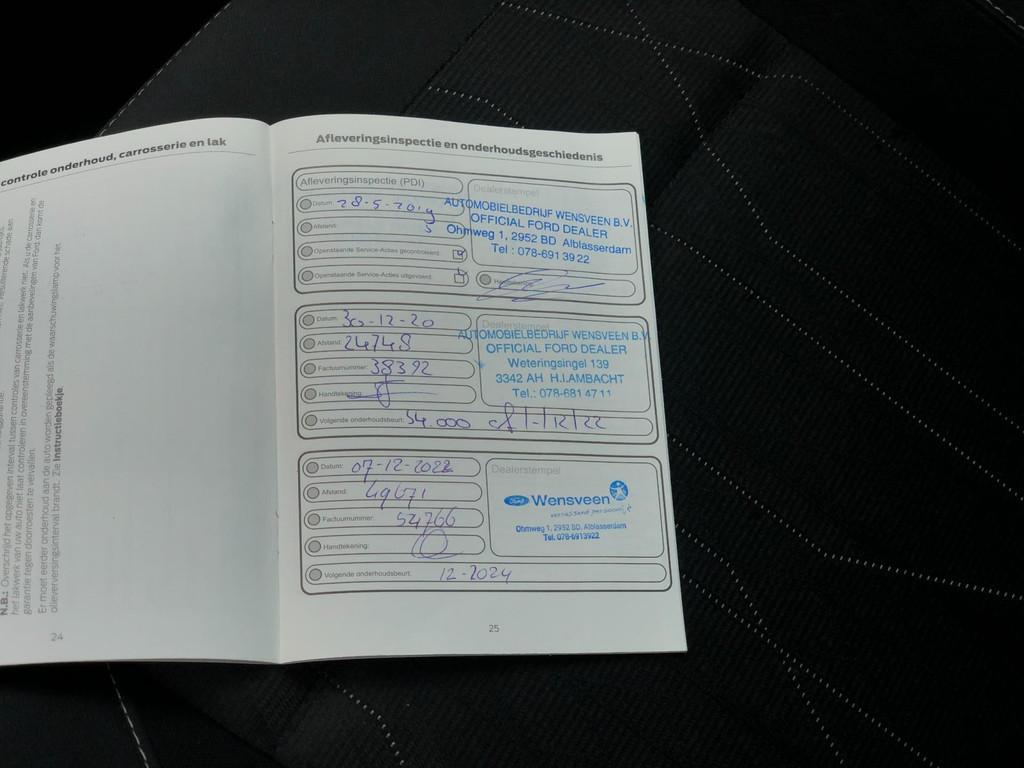 controle onderhoud, carrosserie en lak
N.B.: Overschrijd het opgegeven interval tussen controles van carrosserie en lakwerk niet. Als u de carrosserie en
het lakwerk van uw auto niet laat controleren in overeenstemming met de aanbevelingen van Ford, dan komt de
garantie tegen doorroesten te vervallen.
Er moet eerder onderhoud aan de auto worden gepleegd als de waarschuwingslamp voor het
olieverversingsinterval brandt. Zie Instructieboekje.
24
Afleveringsinspectie en onderhoudsgeschiedenis
Afleveringsinspectie (PDI)
Datum: 28-5-2019
Afstand: 5
Openstaande Service-Acties gecontroleerd:
Openstaande Service-Acties uitgevoerd:
Dealerstempel
AUTOMOBIELBEDRIJF WENSVEEN B.V.
OFFICIAL FORD DEALER
Ohmweg 1, 2952 BD Alblasserdam
Tel : 078-691 39 22
Datum: 30-12-20
Afstand: 24748
Factuurnummer: 38392
Handtekening
Volgende onderhoudsbeurt: 54.000 of 1-12/22
Dealerstempel
AUTOMOBIELBEDRIJF WENSVEEN B.V.
OFFICIAL FORD DEALER
Weteringsingel 139
3342 AH H.I.AMBACHT
Tel.: 078-681 47 11
Datum: 07-12-2022
Afstand: 49671
Factuurnummer: 54766
Handtekening:
Volgende onderhoudsbeurt: 12-2024
Dealerstempel
Ford Wensveen
verrassend persoonlijk
Ohmweg 1, 2952 BD, Alblasserdam
Tel. 078-6913922
25